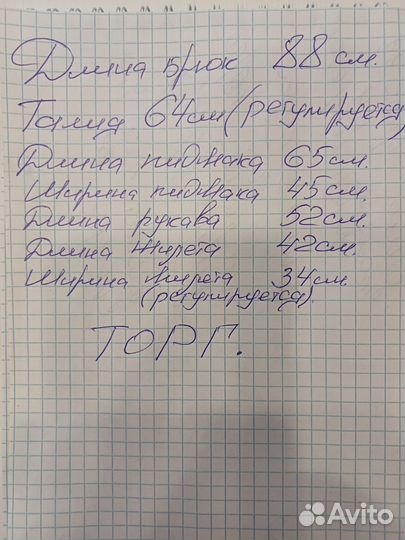 Длина брюк 88 см.
Талия 64 см (регулируется)
Длина пиджака 65 см.
Ширина пиджака 45 см.
Длина рукава 52 см.
Длина жилета 42 см.
Ширина жилета 34 см.
(регулируется)
ТОРГ.
Avito